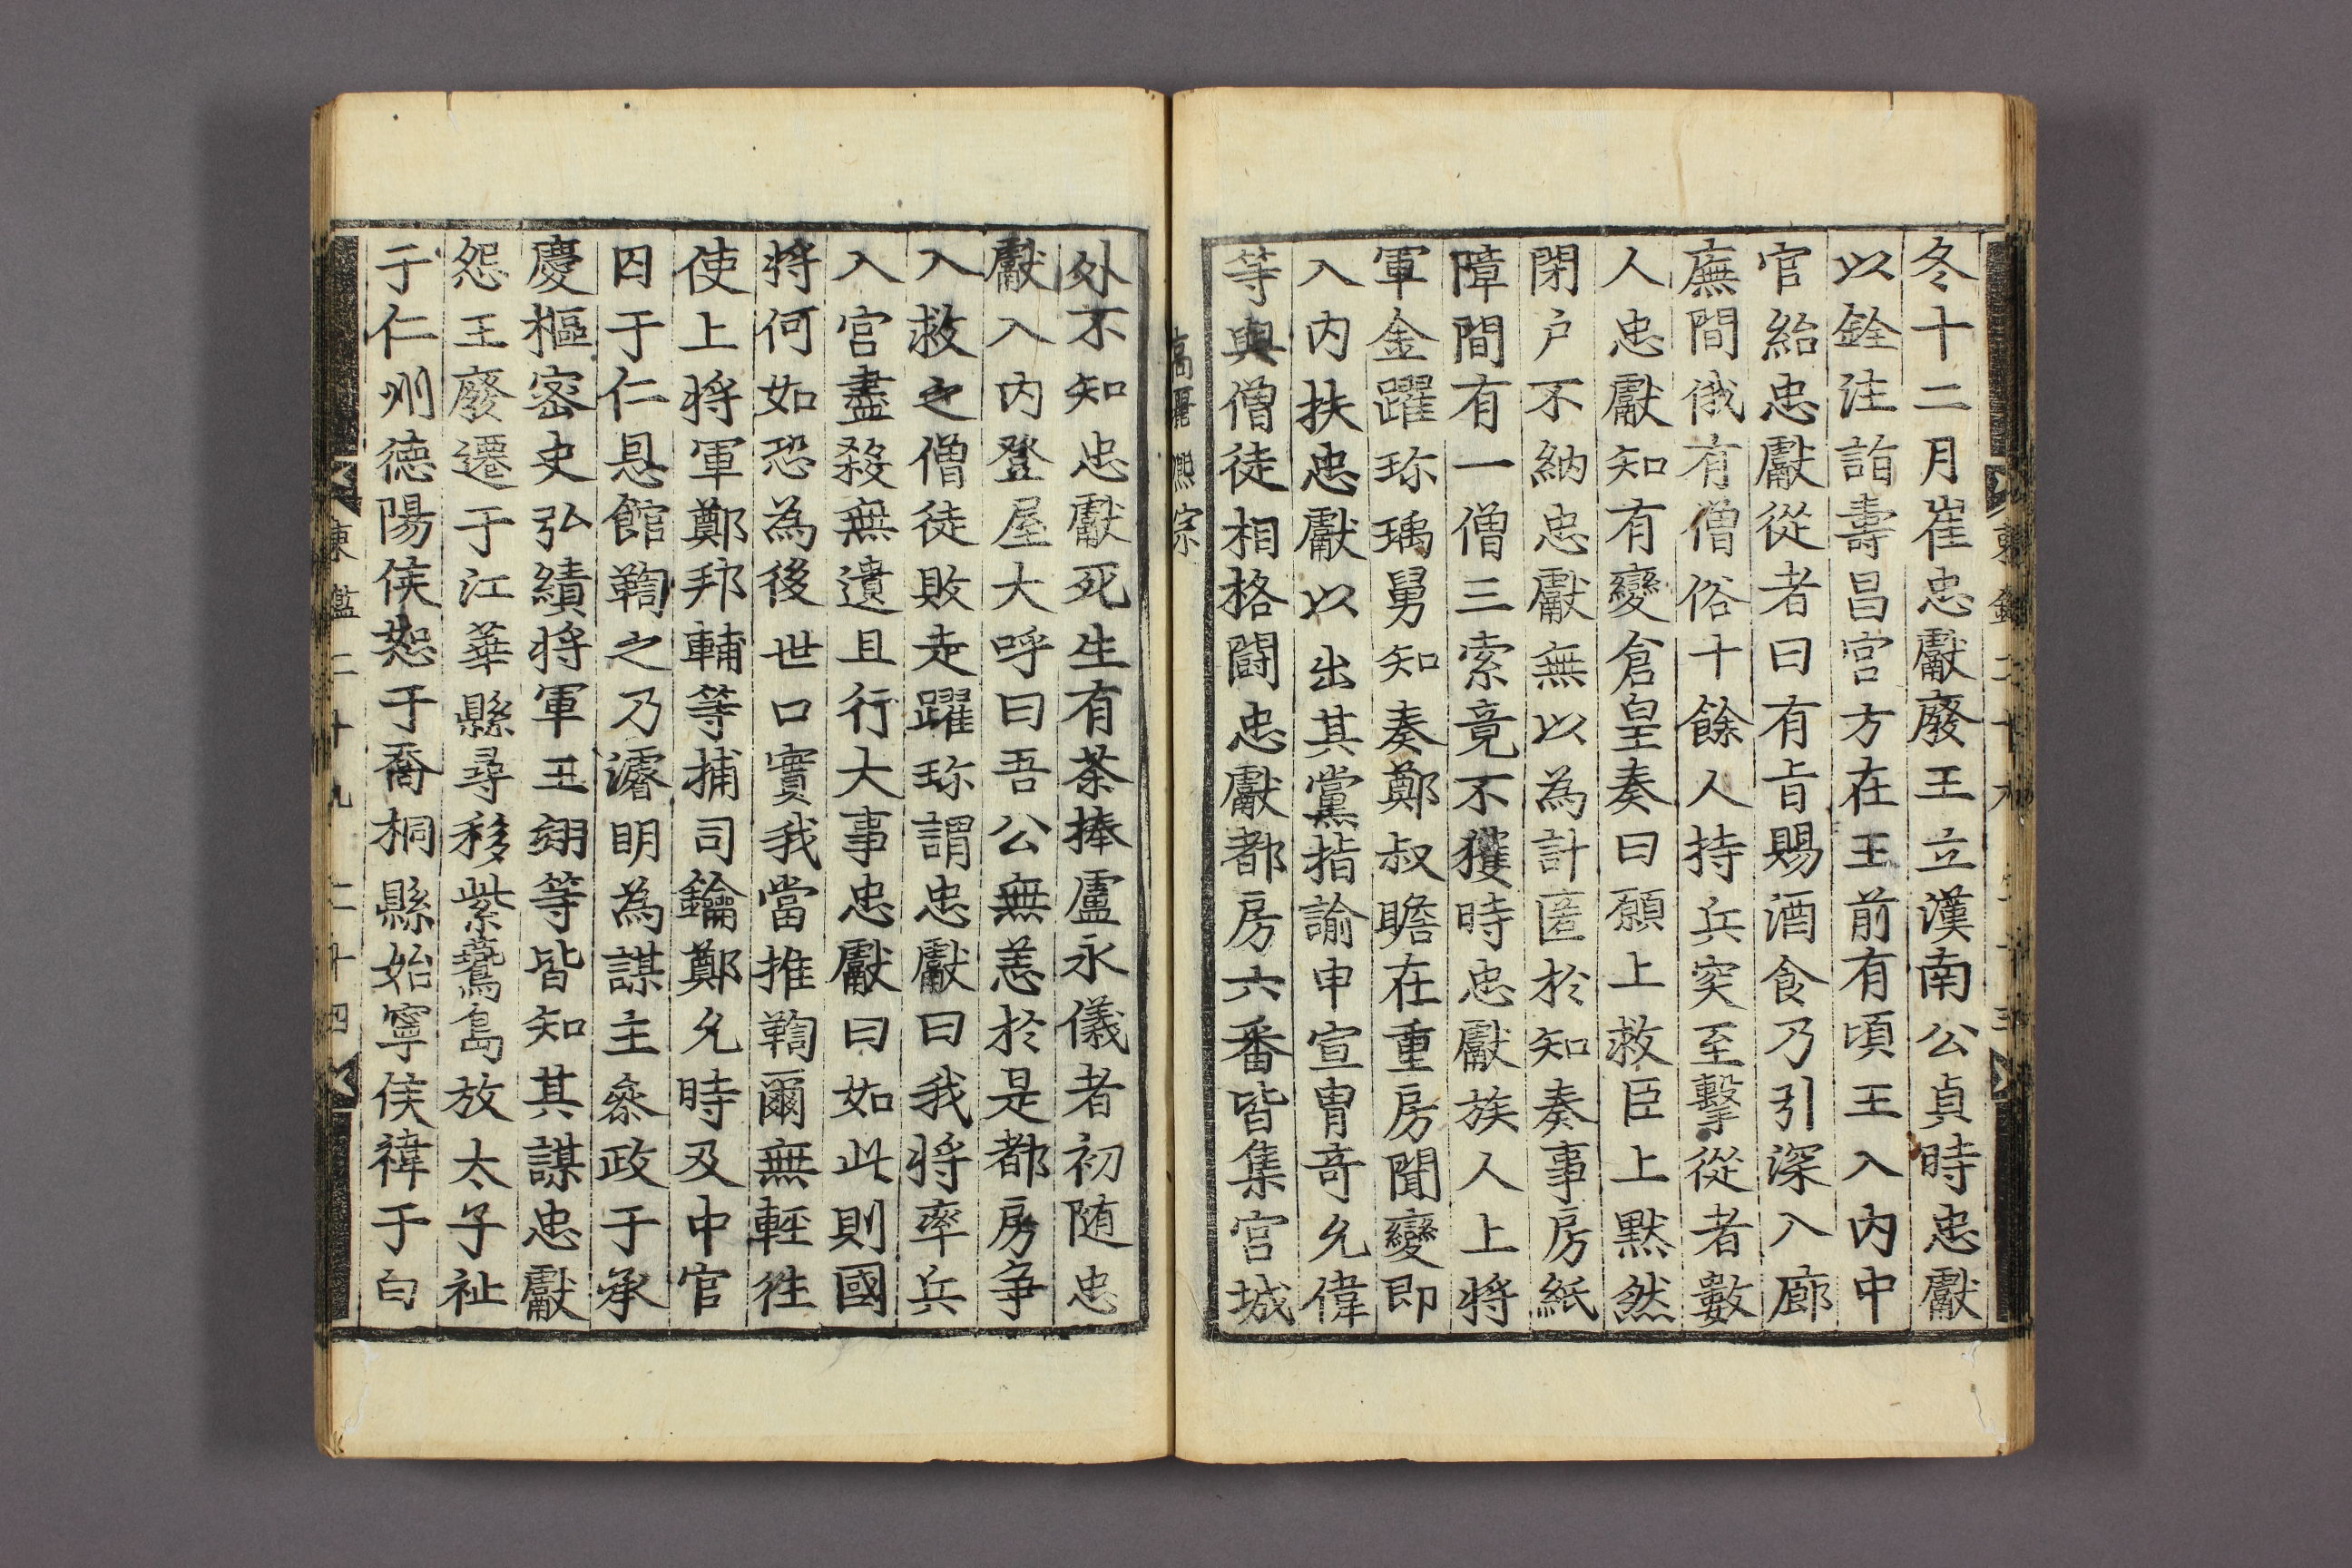 冬十二月崔忠獻廢王立漢南公貞時忠獻
以銓注詣壽昌宮方在王前有頃王入內中
官紿忠獻從者曰有旨賜酒食乃引深入廊
廡間俄有僧俗十餘人持兵突至擊從者數
人忠獻知有變倉皇奏曰願上救臣上默然
閉戶不納忠獻無以為計匿於知奏事房紙
障間有一僧三索竟不獲時忠獻族人上將
軍金躍珎瑀舅知奏鄭叔瞻在重房聞變即
入內扶忠獻以出其黨指諭申宣冑竒允偉
等與僧徒相格鬪忠獻都房六番皆集宮城
高麗 熙宗
外不知忠獻死生有茶捧盧永儀者初随忠
獻入內登屋大呼曰吾公無恙於是都房争
入救之僧徒敗走躍珎謂忠獻曰我將率兵
入宮盡殺無遺且行大事忠獻曰如此則國
將何如恐為後世口實我當推鞫爾無輕徃
使上將軍鄭邦輔等捕司鑰鄭允時及中官
囚于仁恩館鞫之乃濬明為謀主叅政于承
慶樞密史弘績將軍王翊等皆知其謀忠獻
怨王廢遷于江華縣尋移紫鷰島放太子祉
于仁州德陽侯恕于喬桐縣始寧侯禕于白
東鑑二十九 二十四